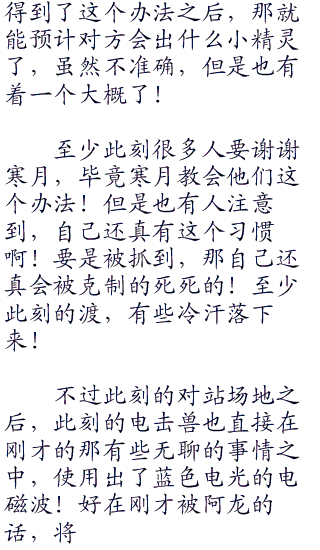 得到了这个办法之后，那就
能预计对方会出什么小精灵
了，虽然不准确，但是也有
着一个大概了！
至少此刻很多人要谢谢
寒月，毕竟寒月教会他们这
个办法！但是也有人注意
到，自己还真有这个习惯
啊！要是被抓到，那自己还
真会被克制的死死的！至少
此刻的渡，有些冷汗落下
来！
不过此刻的对站场地之
后，此刻的电击兽也直接在
刚才的那有些无聊的事情之
中，使用出了蓝色电光的电
磁波！好在刚才被阿龙的
话，将